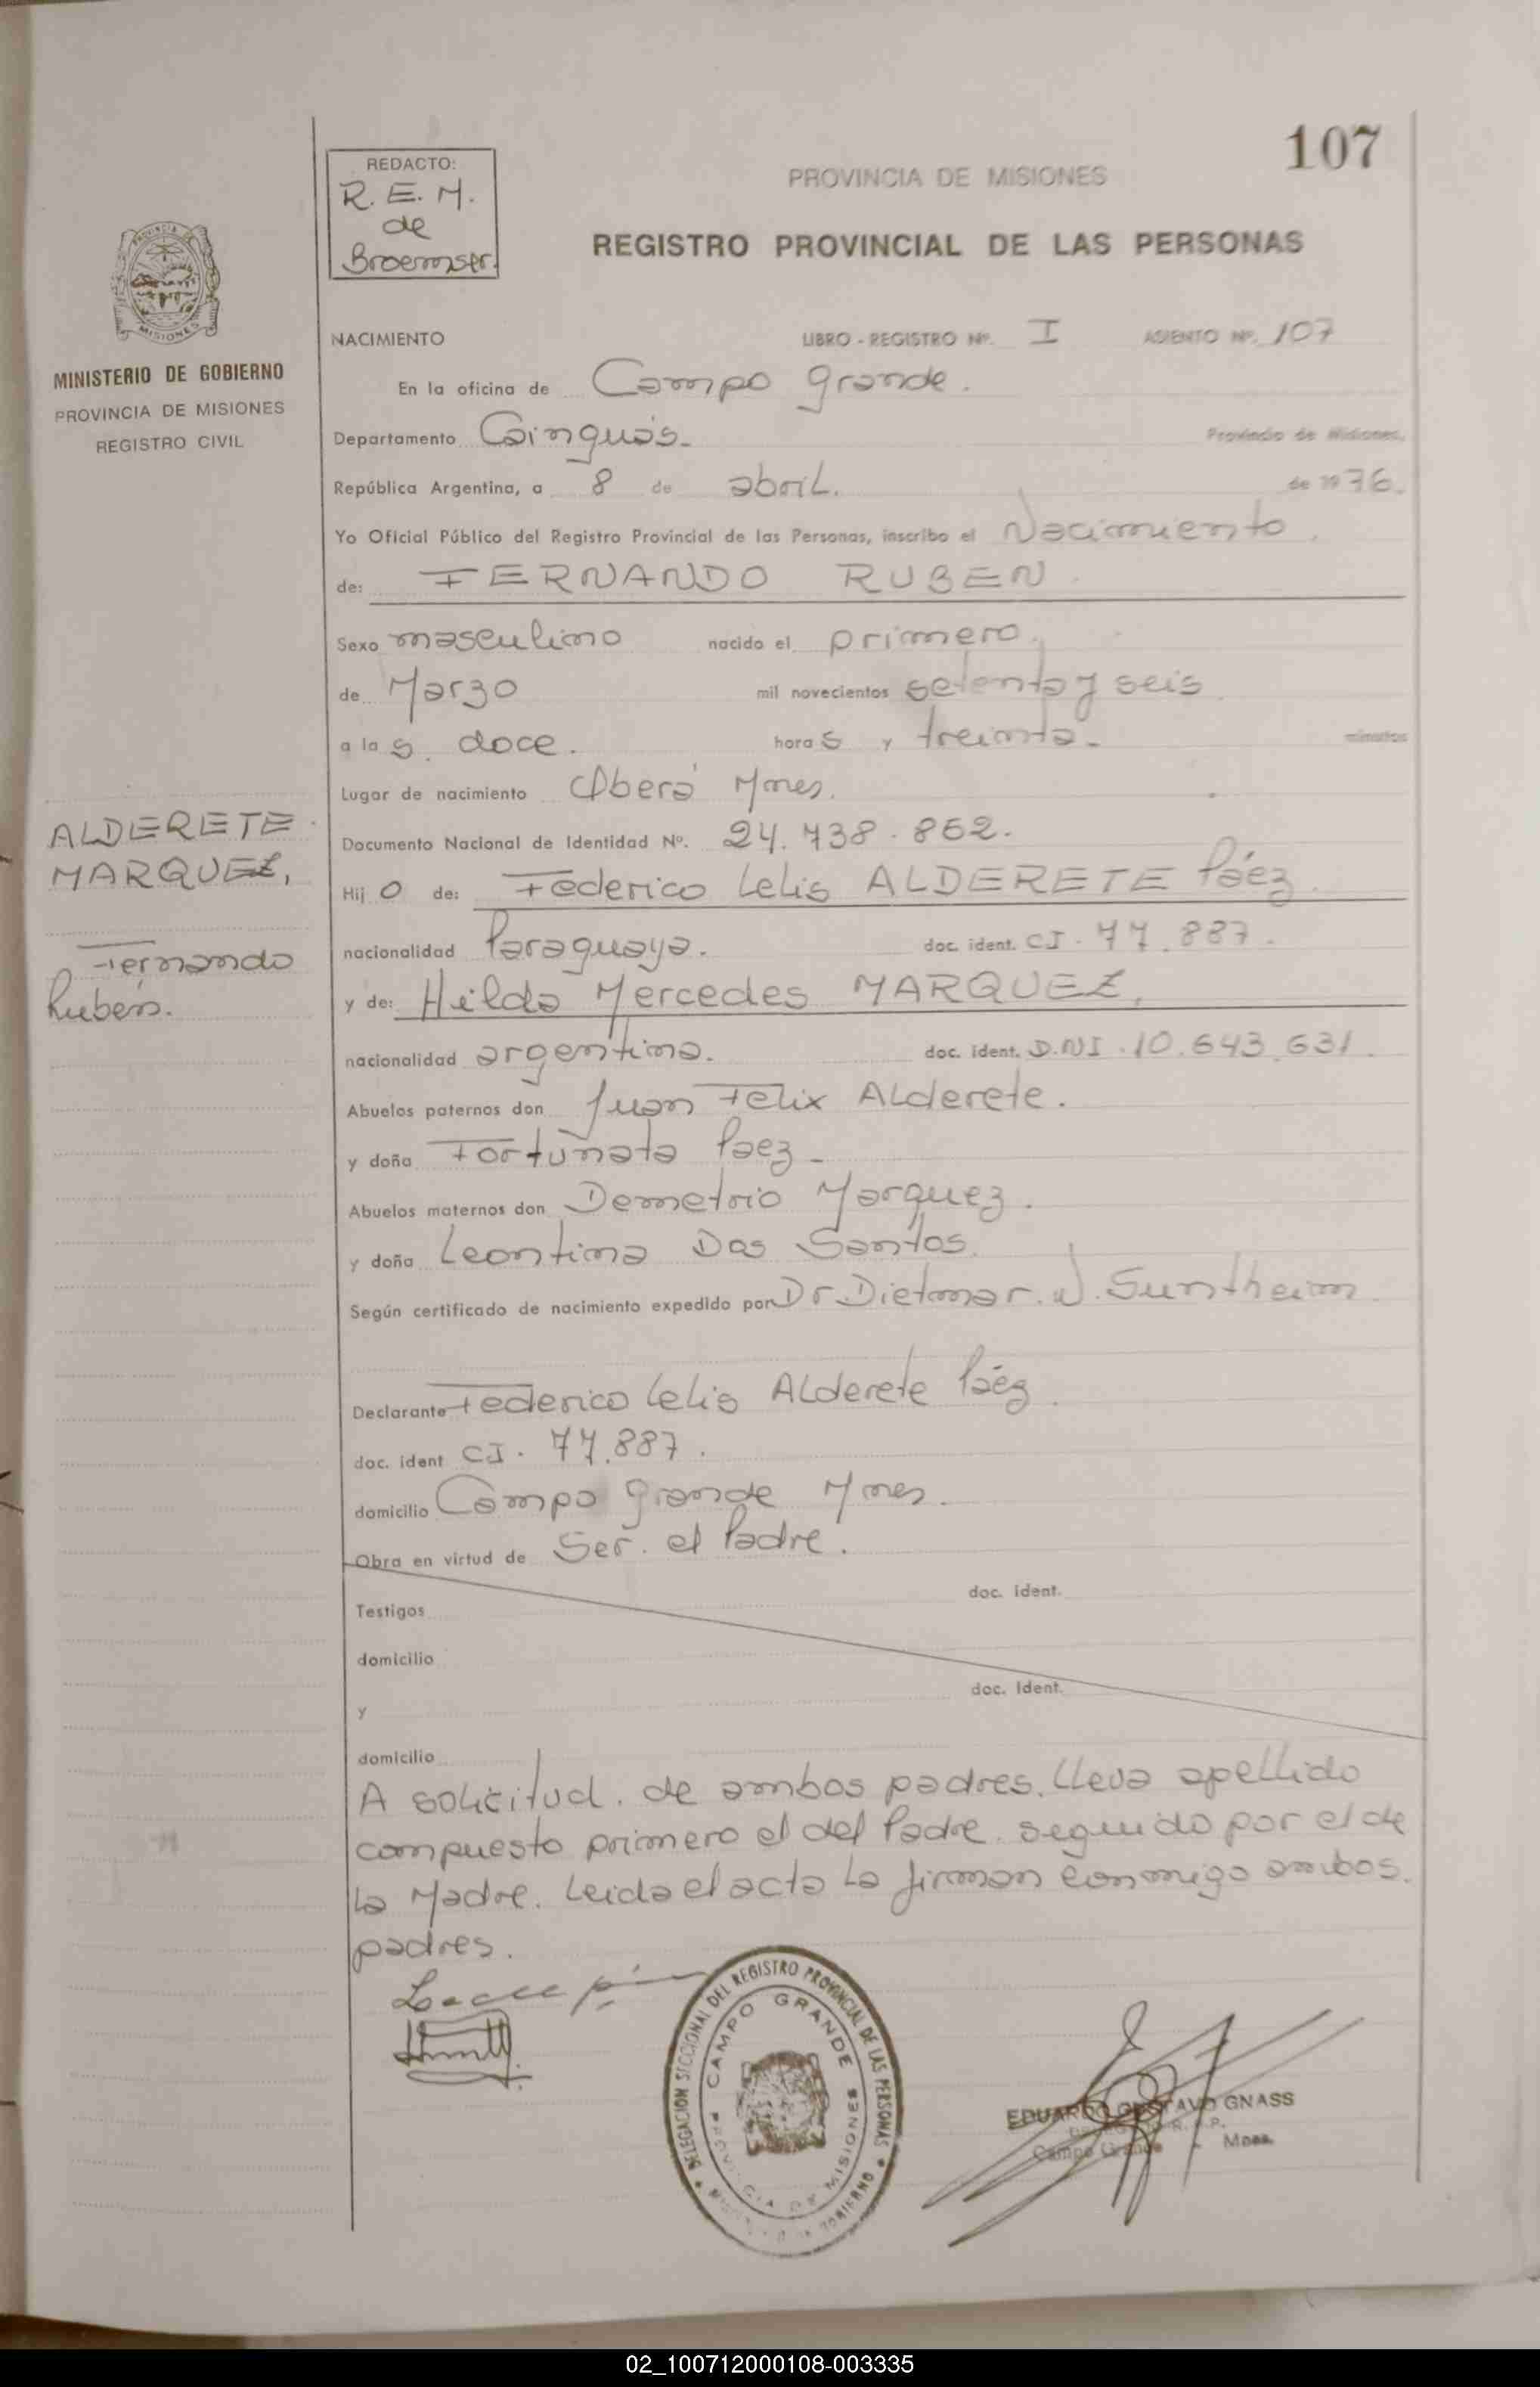 107
REDACTO:
R.E.M.
de
Broemser.
PROVINCIA DE MISIONES
REGISTRO PROVINCIAL DE LAS PERSONAS
PROVINCIA DE
MISIONES
MINISTERIO DE GOBIERNO
PROVINCIA DE MISIONES
REGISTRO CIVIL
NACIMIENTO LIBRO - REGISTRO Nº. I ASIENTO Nº. 107
En la oficina de Campo Grande.
Departamento Cainguás. Provincia de Misiones,
República Argentina, a 8 de abril. de 19 76.
Yo Oficial Público del Registro Provincial de las Personas, inscribo el Nacimiento.
de: FERNANDO RUBEN
Sexo masculino nacido el primero.
de Marzo mil novecientos setenta y seis
a las doce. horas y treinta. minutos
Lugar de nacimiento Oberá Mnes.
Documento Nacional de Identidad Nº. 24.738.862.
ALDERETE
MARQUEZ,
Fernando
Rubén.
Hijo de: Federico Lelis ALDERETE Páez
nacionalidad Paraguaya. doc. ident. CI. 77.887.
y de: Hilda Mercedes MARQUEZ,
nacionalidad argentina. doc. ident. D.NI. 10.643.631.
Abuelos paternos don Juan Felix Alderete.
y doña Fortunata Paez
Abuelos maternos don Demetrio Marquez.
y doña Leontina Dos Santos.
Según certificado de nacimiento expedido por Dr Dietmar. W. Suntheim
Declarante Federico Lelis Alderete Páez
doc. ident CI. 77.887.
domicilio Campo Grande Mnes.
Obra en virtud de Ser. el Padre.
doc. ident.
Testigos
domicilio
doc. Ident.
y
domicilio
A solicitud. de ambos padres. lleva apellido
compuesto primero el del Padre. seguido por el de
la Madre. Leida el acta la firman conmigo ambos.
padres.
DELEGACION SECCIONAL DEL REGISTRO PROVINCIAL DE LAS PERSONAS
CAMPO GRANDE
PROVINCIA DE MISIONES
EDUARDO GUSTAVO GNASS
Campo Grande - Mnes.
02_100712000108-003335